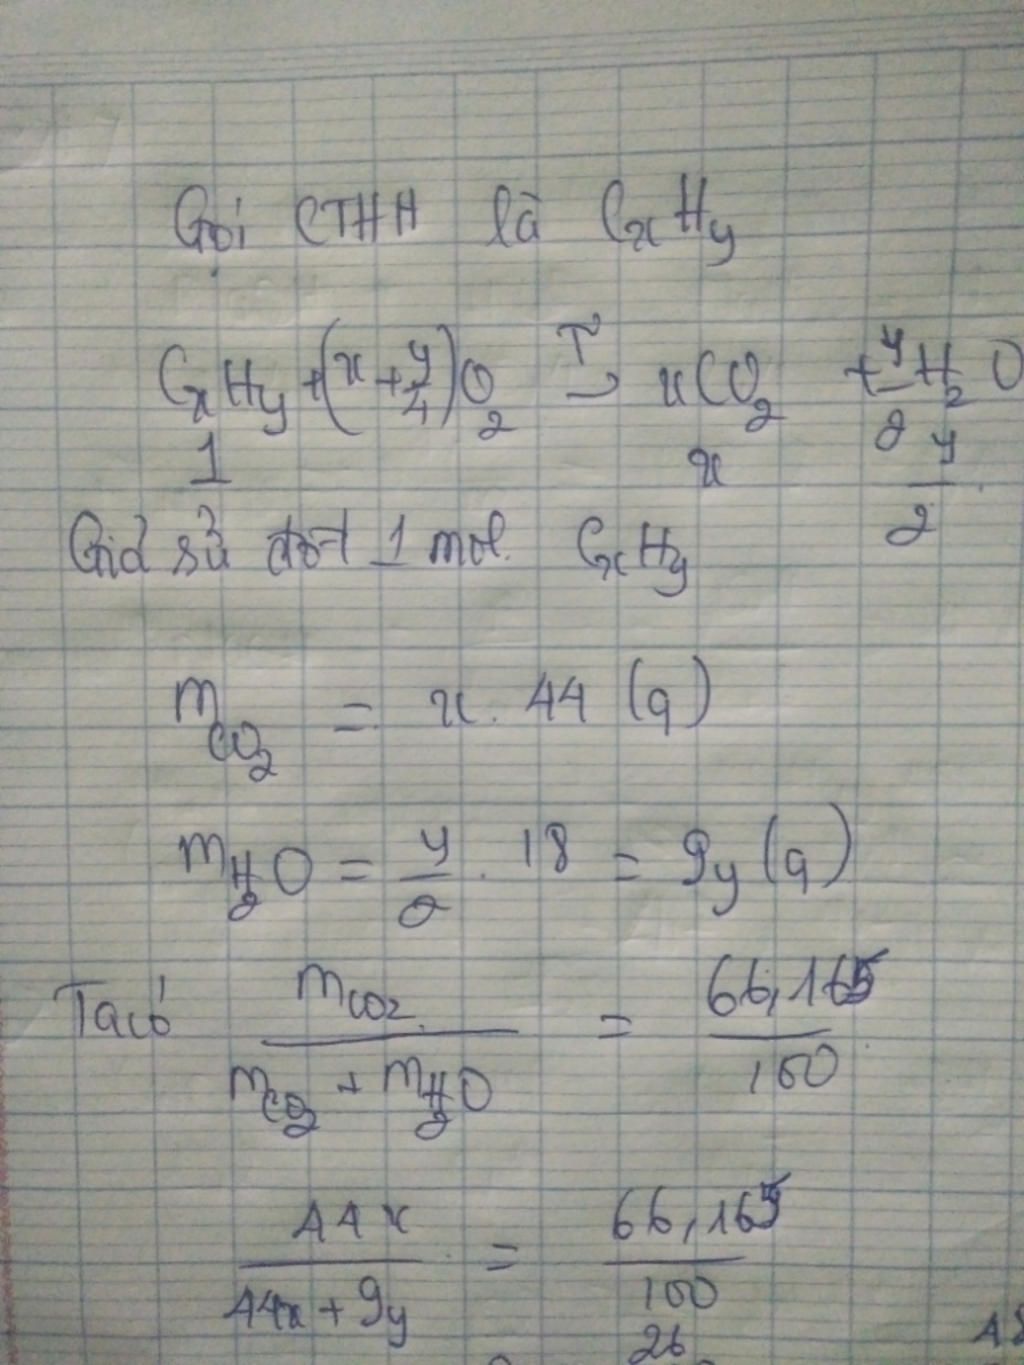 Gọi CTHH là CxHy
CxHy + (x + y/4) O2 T° → xCO2 + y/2 H2O
1 x y/2
Giả sử đốt 1 mol CxHy
mCO2 = x . 44 (g)
mH2O = y/2 . 18 = 9y (g)
Ta có mCO2 / (mCO2 + mH2O) = 66,165 / 100
44x / (44x + 9y) = 66,165 / 100
26